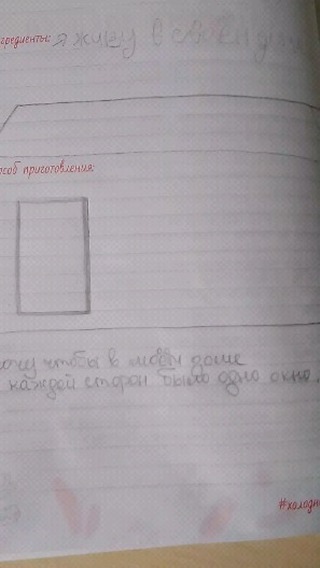 гредиенты: я живу в своём доме
особ приготовления:
хочу чтобы в моём доме
каждой сторон было одно окно.
#холодн